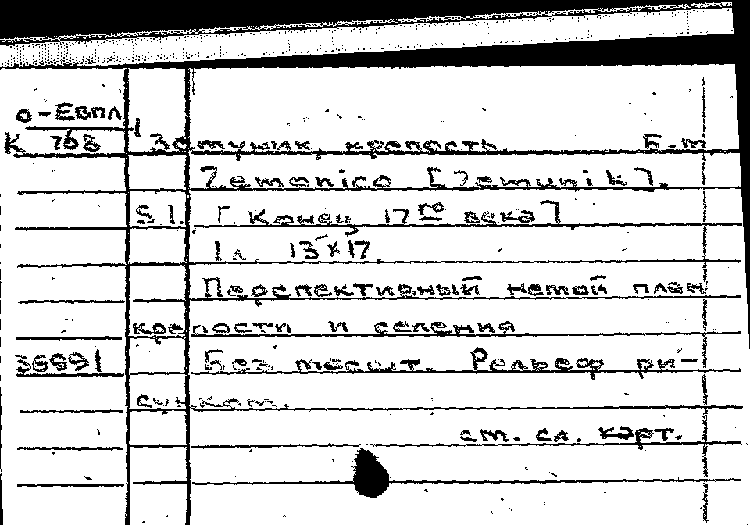 о-Евпл
К 763
Земуник, крепость. Б-т
Zemonico [Zemunik].
S l. [Конец 17го века]
1 л. 13×17.
Перспективный немой план
крепости и селения
36891 Без масшт. Рельеф ри-
сунком.
см. сл. карт.